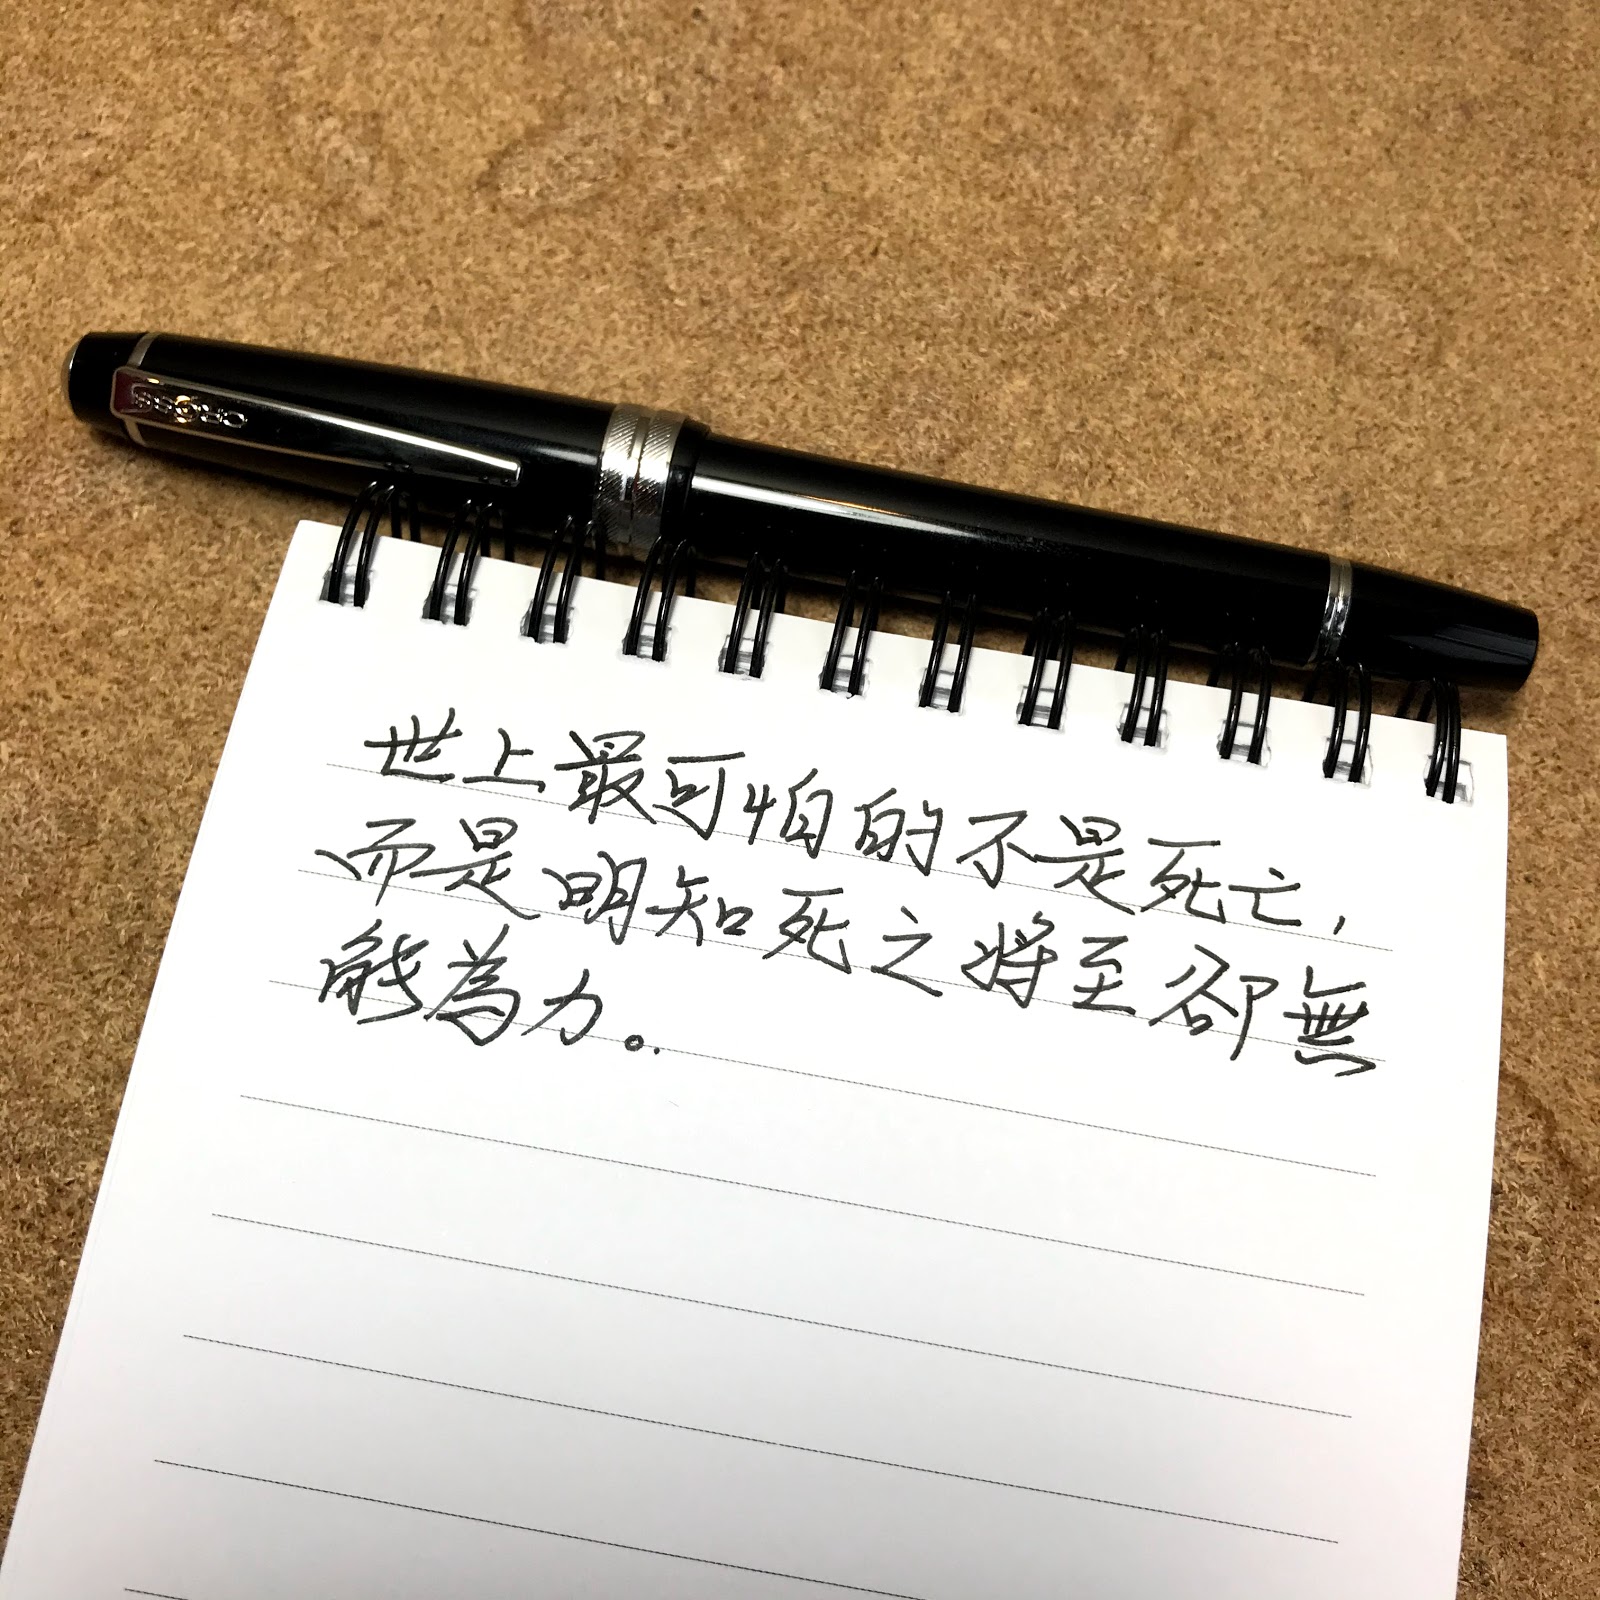 世上最可怕的不是死亡，
而是明知死之將至卻無
能為力。